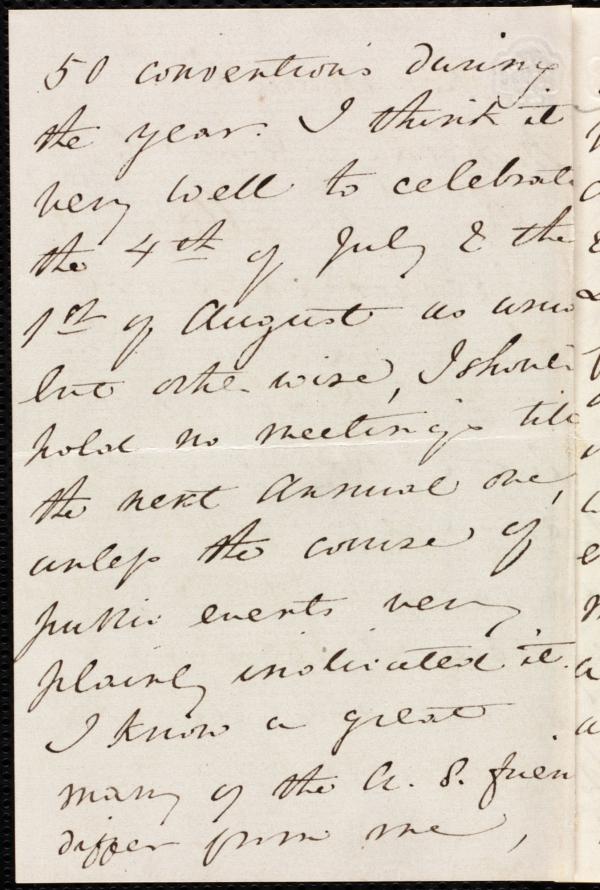 50 conventions during
the year. I think it
very well to celebrate
the 4th of July & the
1st of August as usu
but otherwise, I should
hold no meetings till
the next Annual one,
unless the course of
public events very
plainly indicated it.
I know a great
many of the A. S. frien
differ from me,